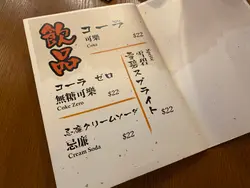 飲品
コーラ
可樂
Coke
$22
スプライト
$22
コーラ ゼロ
無糖可樂
Coke Zero
$22
忌廉クリームソーダ
忌廉
Cream Soda
$22